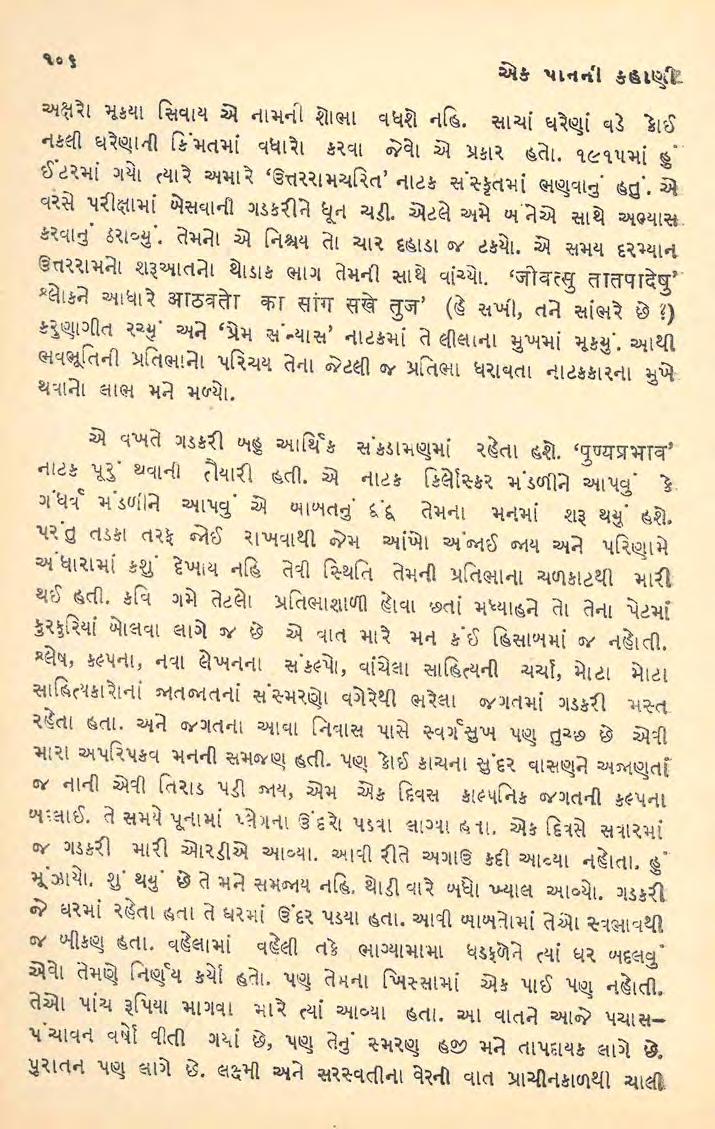 ૧૦૬
એક પાનની કહાણી
અક્ષરો મૂકયા સિવાય એ નામની શોભા વધશે નહિ. સાચાં ઘરેણાં વડે કોઈ
નકલી ઘરેણાની કિંમતમાં વધારો કરવા જેવો એ પ્રકાર હતો. ૧૯૧૫માં હું
ઈંટરમાં ગયો ત્યારે અમારે ‘ઉત્તરરામચરિત’ નાટક સંસ્કૃતમાં ભણવાનું હતું. એ
વરસે પરીક્ષામાં બેસવાની ગડકરીને ધૂન ચડી. એટલે અમે બંનેએ સાથે અભ્યાસ
કરવાનું ઠરાવ્યું. તેમનો એ નિશ્ચય તો ચાર દહાડા જ ટકયો. એ સમય દરમ્યાન
ઉત્તરરામનો શરૂઆતનો થોડાક ભાગ તેમની સાથે વાંચ્યો. ‘जीवत्सु तातपादेषु’
શ્લોકને આધારે आठवतो का सांग सखे तुज’ (હે સખી, તને સાંભરે છે ?)
કરુણાગીત રચ્યું અને ‘પ્રેમ સંન્યાસ’ નાટકમાં તે લીલાના મુખમાં મૂકયું. આથી
ભવભૂતિની પ્રતિભાનો પરિચય તેના જેટલી જ પ્રતિભા ધરાવતા નાટકકારના મુખે
થવાનો લાભ મને મળ્યો.
એ વખતે ગડકરી બહુ આર્થિક સંકડામણમાં રહેતા હશે. ‘पुण्यप्रभाव’
નાટક પૂરું થવાની તૈયારી હતી. એ નાટક કિર્લોસ્કર મંડળીને આપવું કે
ગંધર્વ મંડળીને આપવું એ બાબતનું દ્વંદ્વ તેમના મનમાં શરૂ થયું હશે.
પરંતુ તડકા તરફ જોઈ રાખવાથી જેમ આંખો અંજાઈ જાય અને પરિણામે
અંધારામાં કશું દેખાય નહિ તેવી સ્થિતિ તેમની પ્રતિભાના ચળકાટથી મારી
થઈ હતી. કવિ ગમે તેટલો પ્રતિભાશાળી હોવા છતાં મધ્યાહને તો તેના પેટમાં
કુરકુરિયાં બોલવા લાગે જ છે એ વાત મારે મન કંઈ હિસાબમાં જ નહોતી.
શ્લેષ, કલ્પના, નવા લેખનના સંકલ્પો, વાંચેલા સાહિત્યની ચર્ચા, મોટા મોટા
સાહિત્યકારોનાં જાતજાતનાં સંસ્મરણો વગેરેથી ભરેલા જગતમાં ગડકરી મસ્ત
રહેતા હતા. અને જગતના આવા નિવાસ પાસે સ્વર્ગસુખ પણ તુચ્છ છે એવી
મારા અપરિપકવ મનની સમજણ હતી. પણ કોઈ કાચના સુંદર વાસણને અજાણતાં
જ નાની એવી તિરાડ પડી જાય, એમ એક દિવસ કાલ્પનિક જગતની કલ્પના
બદલાઈ. તે સમયે પૂનામાં પ્લેગના ઉંદરો પડવા લાગ્યા હતા. એક દિવસે સવારમાં
જ ગડકરી મારી ઓરડીએ આવ્યા. આવી રીતે અગાઉ કદી આવ્યા નહોતા. હું
મૂંઝાયો. શું થયું છે તે મને સમજાય નહિ. થોડી વારે બધો ખ્યાલ આવ્યો. ગડકરી
જે ઘરમાં રહેતા હતા તે ઘરમાં ઉંદર પડયા હતા. આવી બાબતોમાં તેઓ સ્વભાવથી
જ બીકણ હતા. વહેલામાં વહેલી તકે ભાગ્યામામા ધડફળેને ત્યાં ઘર બદલવું
એવો તેમણે નિર્ણય કર્યો હતો. પણ તેમના ખિસ્સામાં એક પાઈ પણ નહોતી.
તેઓ પાંચ રૂપિયા માગવા મારે ત્યાં આવ્યા હતા. આ વાતને આજે પચાસ–
પંચાવન વર્ષો વીતી ગયાં છે, પણ તેનું સ્મરણ હજી મને તાપદાયક લાગે છે.
પુરાતન પણ લાગે છે. લક્ષ્મી અને સરસ્વતીના વેરની વાત પ્રાચીનકાળથી ચાલી